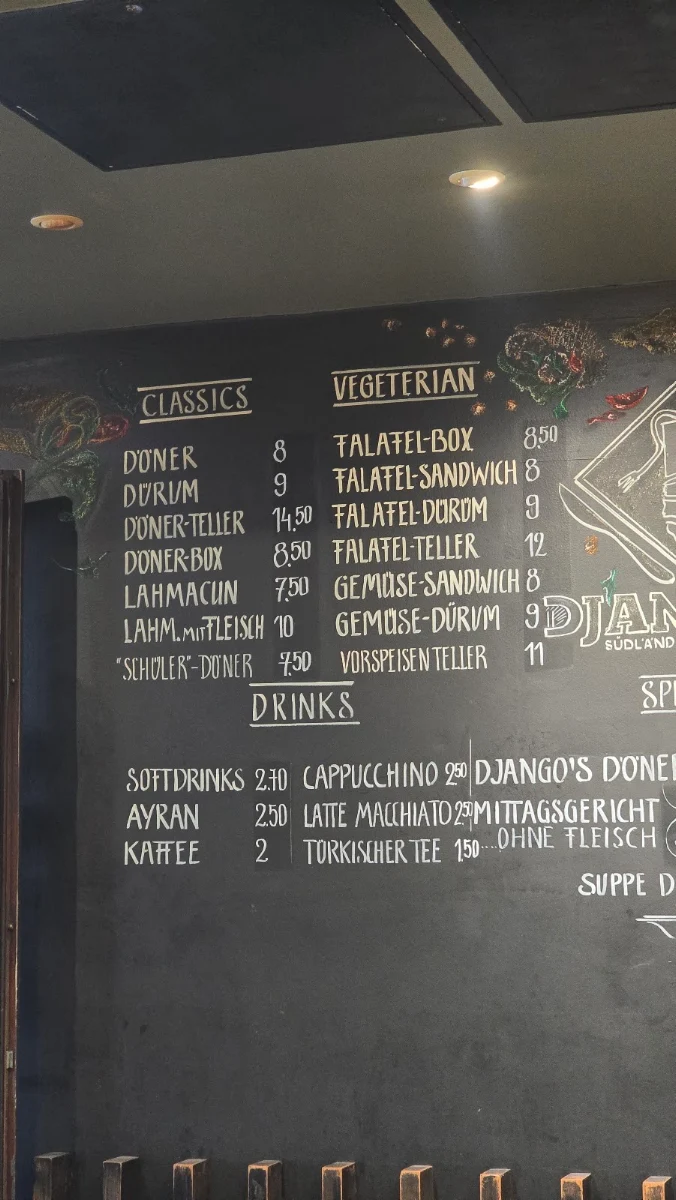 CLASSICS
DÖNER 8
DÜRÜM 9
DÖNER-TELLER 14,50
DÖNER-BOX 8,50
LAHMACUN 7,50
LAHM. MIT FLEISCH 10
"SCHÜLER"-DÖNER 7,50
VEGETERIAN
FALAFEL-BOX 8,50
FALAFEL-SANDWICH 8
FALAFEL-DÜRÜM 9
FALAFEL-TELLER 12
GEMÜSE-SANDWICH 8
GEMÜSE-DÜRÜM 9
VORSPEISENTELLER 11
DRINKS
SOFTDRINKS 2.70
AYRAN 2.50
KAFFEE 2
CAPPUCCHINO 2,50
LATTE MACCHIATO 2,50
TÜRKISCHER TEE 1,50
DJANGO'S DÖNE
MITTAGSGERICHT
....OHNE FLEISCH
SUPPE D